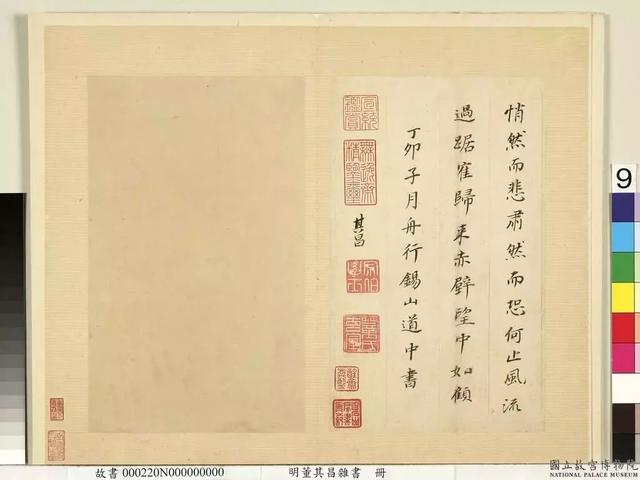 悄然而悲肅然而恐何止風流
過踞寉歸来赤壁望中如顧
丁卯子月舟行錫山道中書
其昌
宣統鑒賞
無逸齋精鑒璽
9
故書 000220N000000000
明董其昌雜書 冊
國立故宮博物院
NATIONAL PALACE MUSEUM